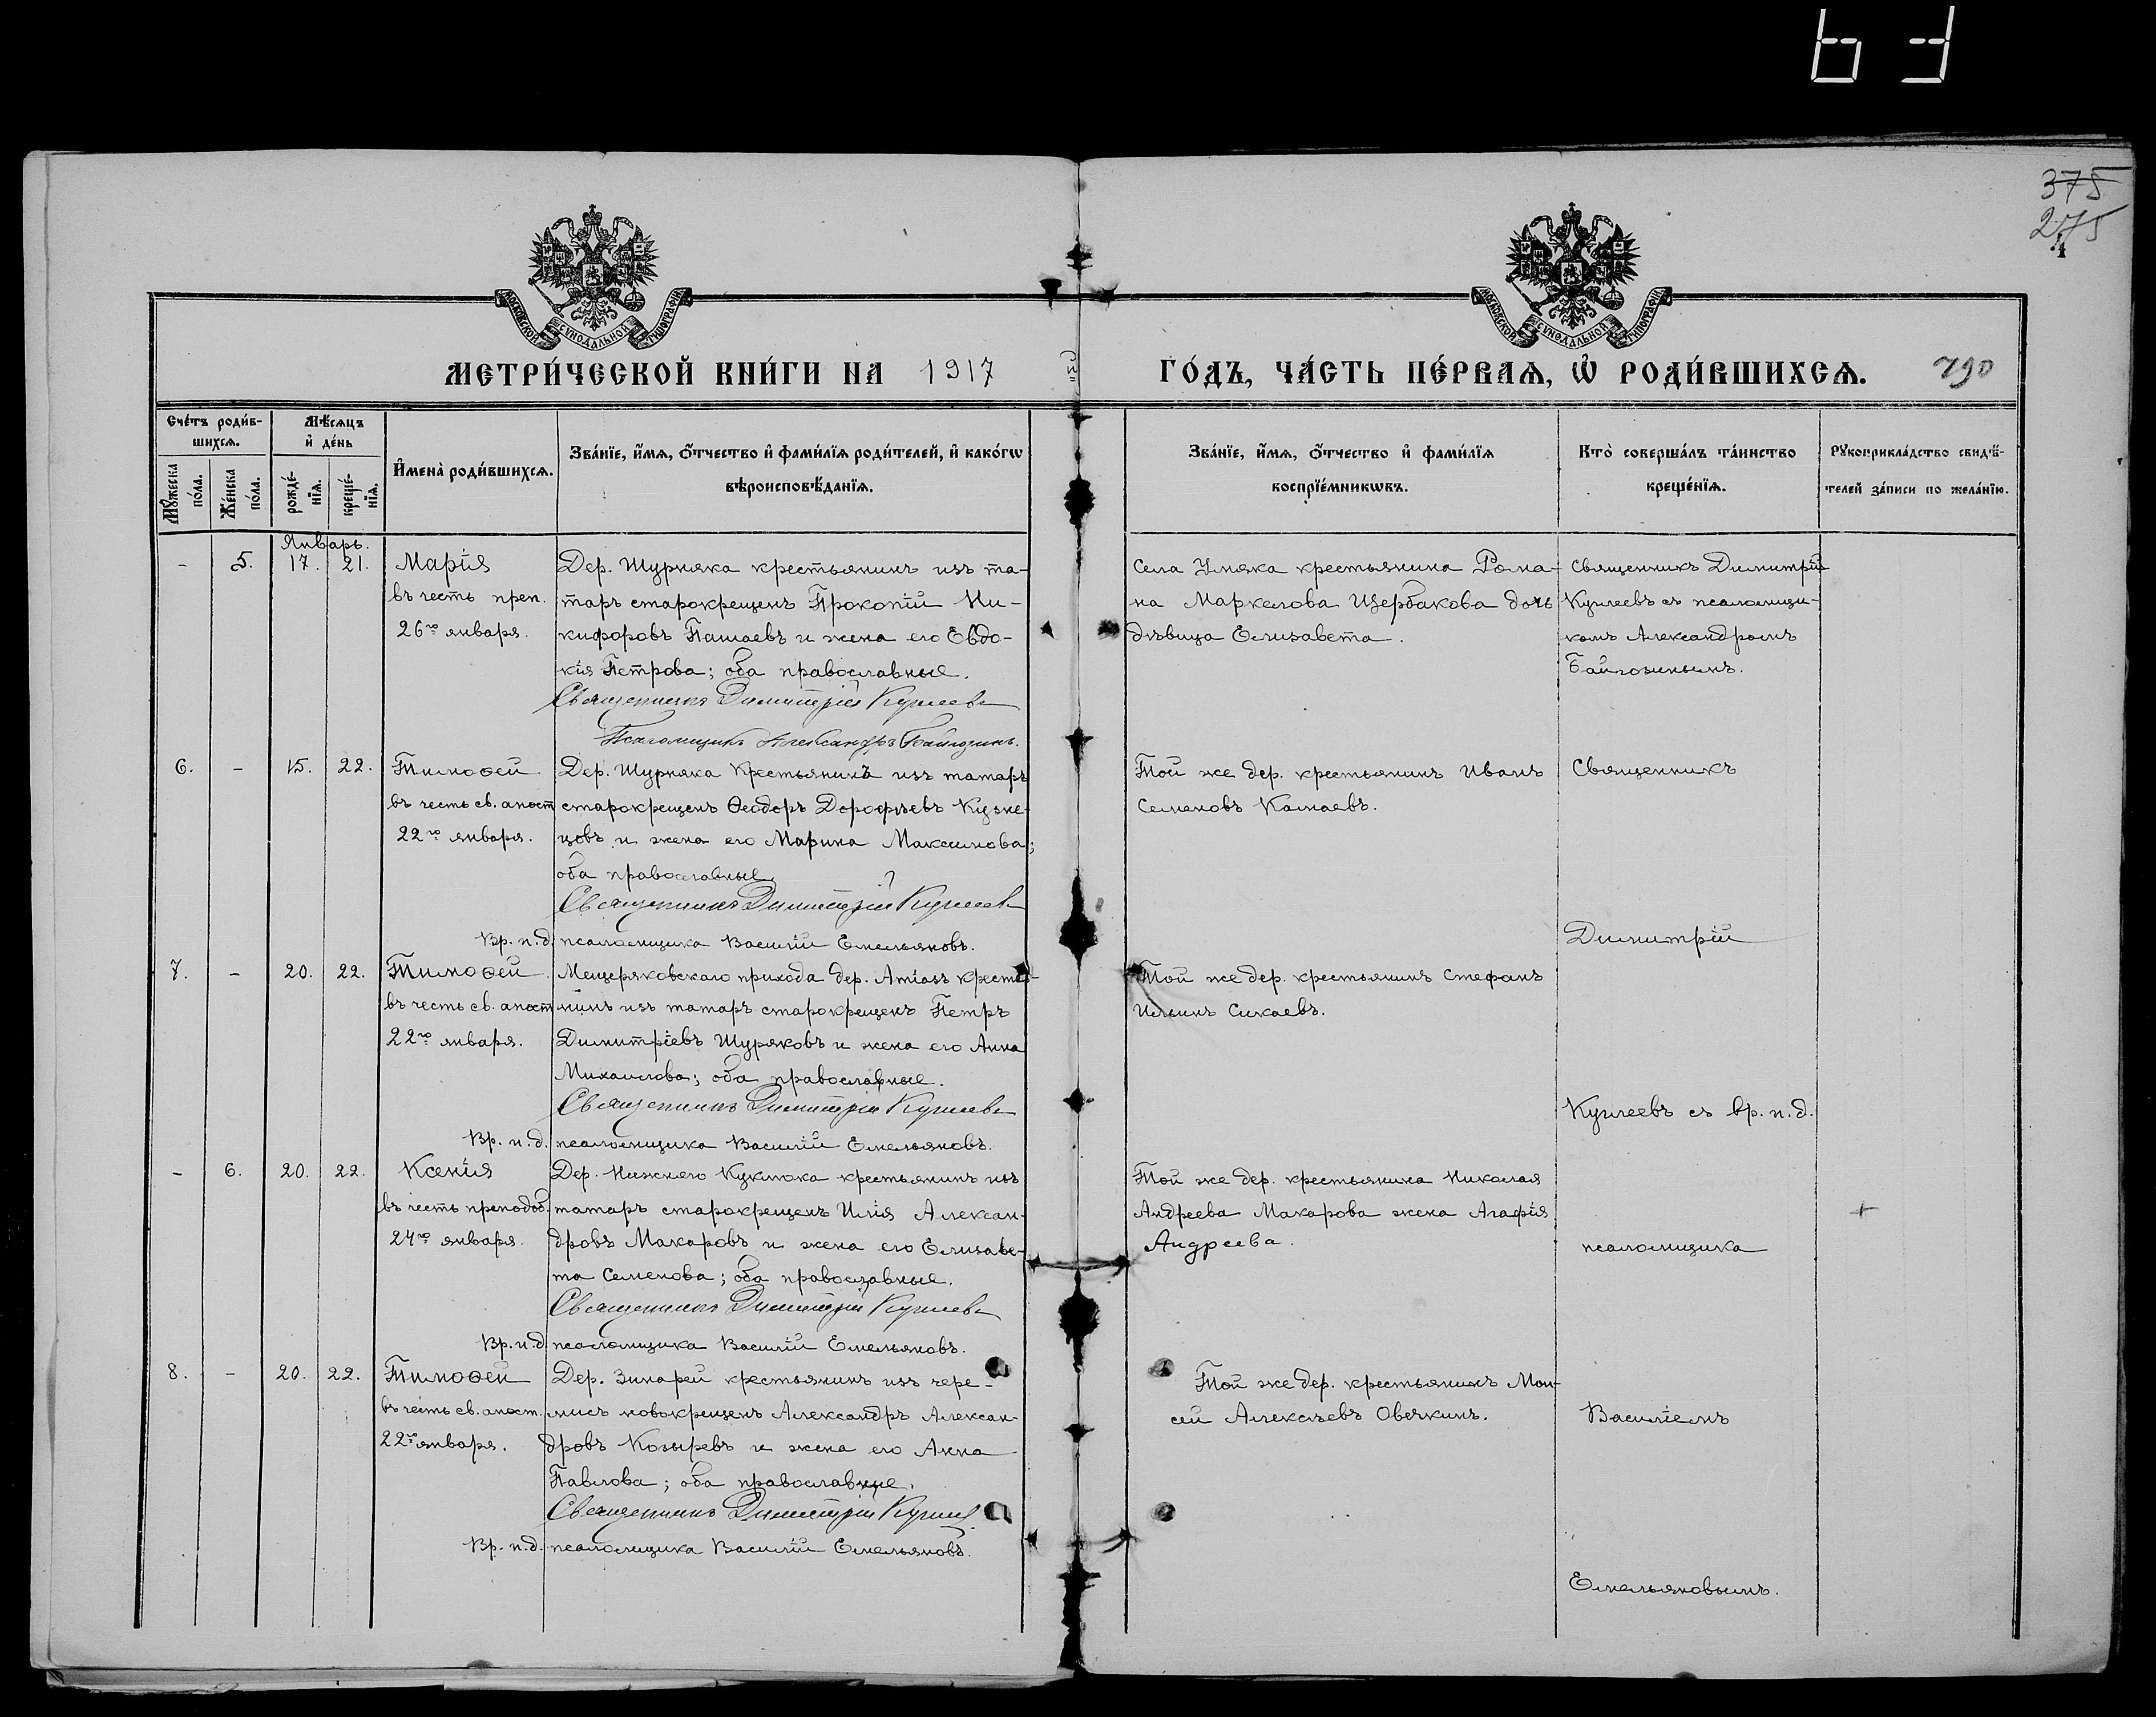 375
275
4
МОСКОВСКОЙ СѴНОДАЛЬНОЙ ТИПОГРАФІИ
МОСКОВСКОЙ СѴНОДАЛЬНОЙ ТИПОГРАФІИ
МЕТРИ́ЧЕСКОЙ КНИ́ГИ НА 1917 ГО́ДЪ, ЧА́СТЬ ПЕ́РВАѦ, Ѡ҆ РОДИ́ВШИХСѦ. 790
Сче́тъ роди́вшихсѧ.
Мꙋ́жеска по́ла.
Же́нска по́ла.
Мѣ́сѧцъ и҆ де́нь
рожде́нїѧ.
креще́нїѧ.
И҆мена̀ роди́вшихсѧ.
Зва́нїе, и҆́мѧ, ѻ҆́тчество и҆ фами́лїѧ роди́телей, и҆ како́гѡ
вѣроисповѣ́данїѧ.
Зва́нїе, и҆́мѧ, ѻ҆́тчество и҆ фами́лїѧ
воспрїе́мникѡвъ.
Кто̀ соверша́лъ та́инство
креще́нїѧ.
Рꙋкоприкла́дство свидѣ́-
телей за́писи по жела́нїю.
Январь.
- 5. 17. 21. Марія
въ честь преп.
26го января.
Дер. Шурняка крестьянинъ изъ та-
таръ старокрещенъ Прокопій Ни-
кифоровъ Пашаевъ и жена его Евдо-
кія Петрова; оба православные.
Священникъ Димитрій Куглеевъ
Псаломщикъ Александръ Байгозинъ.
Села Умяка крестьянина Рома-
на Маркелова Щербакова дочь
дѣвица Елизавета.
Священникъ Димитрій
Куглеевъ съ псаломщи-
комъ Александромъ
Байгозинымъ.
6. - 15. 22. Тимоѳей
въ честь св. апост.
22го января.
Дер. Шурняка крестьянинъ изъ татаръ
старокрещенъ Ѳеодоръ Дорофѣевъ Кузне-
цовъ и жена его Марина Максимова;
оба православные.
Священникъ Димитрій Куглеевъ
Вр. и. д. псаломщика Василій Емельяновъ.
Той же дер. крестьянинъ Иванъ
Семеновъ Камаевъ.
Священникъ
Димитрій
7. - 20. 22. Тимоѳей
въ честь св. апост.
22го января.
Мещеряковскаго прихода дер. Атіазъ крестья-
нинъ изъ татаръ старокрещенъ Петръ
Димитріевъ Шуряковъ и жена его Анна
Михаилова; оба православные.
Священникъ Димитрій Куглеевъ
Вр. и. д. псаломщика Василій Емельяновъ.
Той же дер. крестьянинъ Стефанъ
Ильинъ Сикаевъ.
Куглеевъ съ вр. и. д.
- 6. 20. 22. Ксенія
въ честь преподоб.
24го января.
Дер. Нижняго Кукмока крестьянинъ изъ
татаръ старокрещенъ Илія Алексан-
дровъ Макаровъ и жена его Елизаве-
та Семенова; оба православные.
Священникъ Димитрій Куглеевъ
Вр. и. д. псаломщика Василій Емельяновъ.
Той же дер. крестьянина Николая
Андреева Макарова жена Агафія
Андреева.
псаломщика
8. - 20. 22. Тимоѳей
въ честь св. апост.
22го января.
Дер. Зинарей крестьянинъ изъ чере-
мисъ новокрещенъ Александръ Алексан-
дровъ Козыревъ и жена его Анна
Павлова; оба православные.
Священникъ Димитрій Куглеевъ
Вр. и. д. псаломщика Василій Емельяновъ.
Той же дер. крестьянинъ Мои-
сей Алексѣевъ Овечкинъ.
Василіемъ
Емельяновымъ.